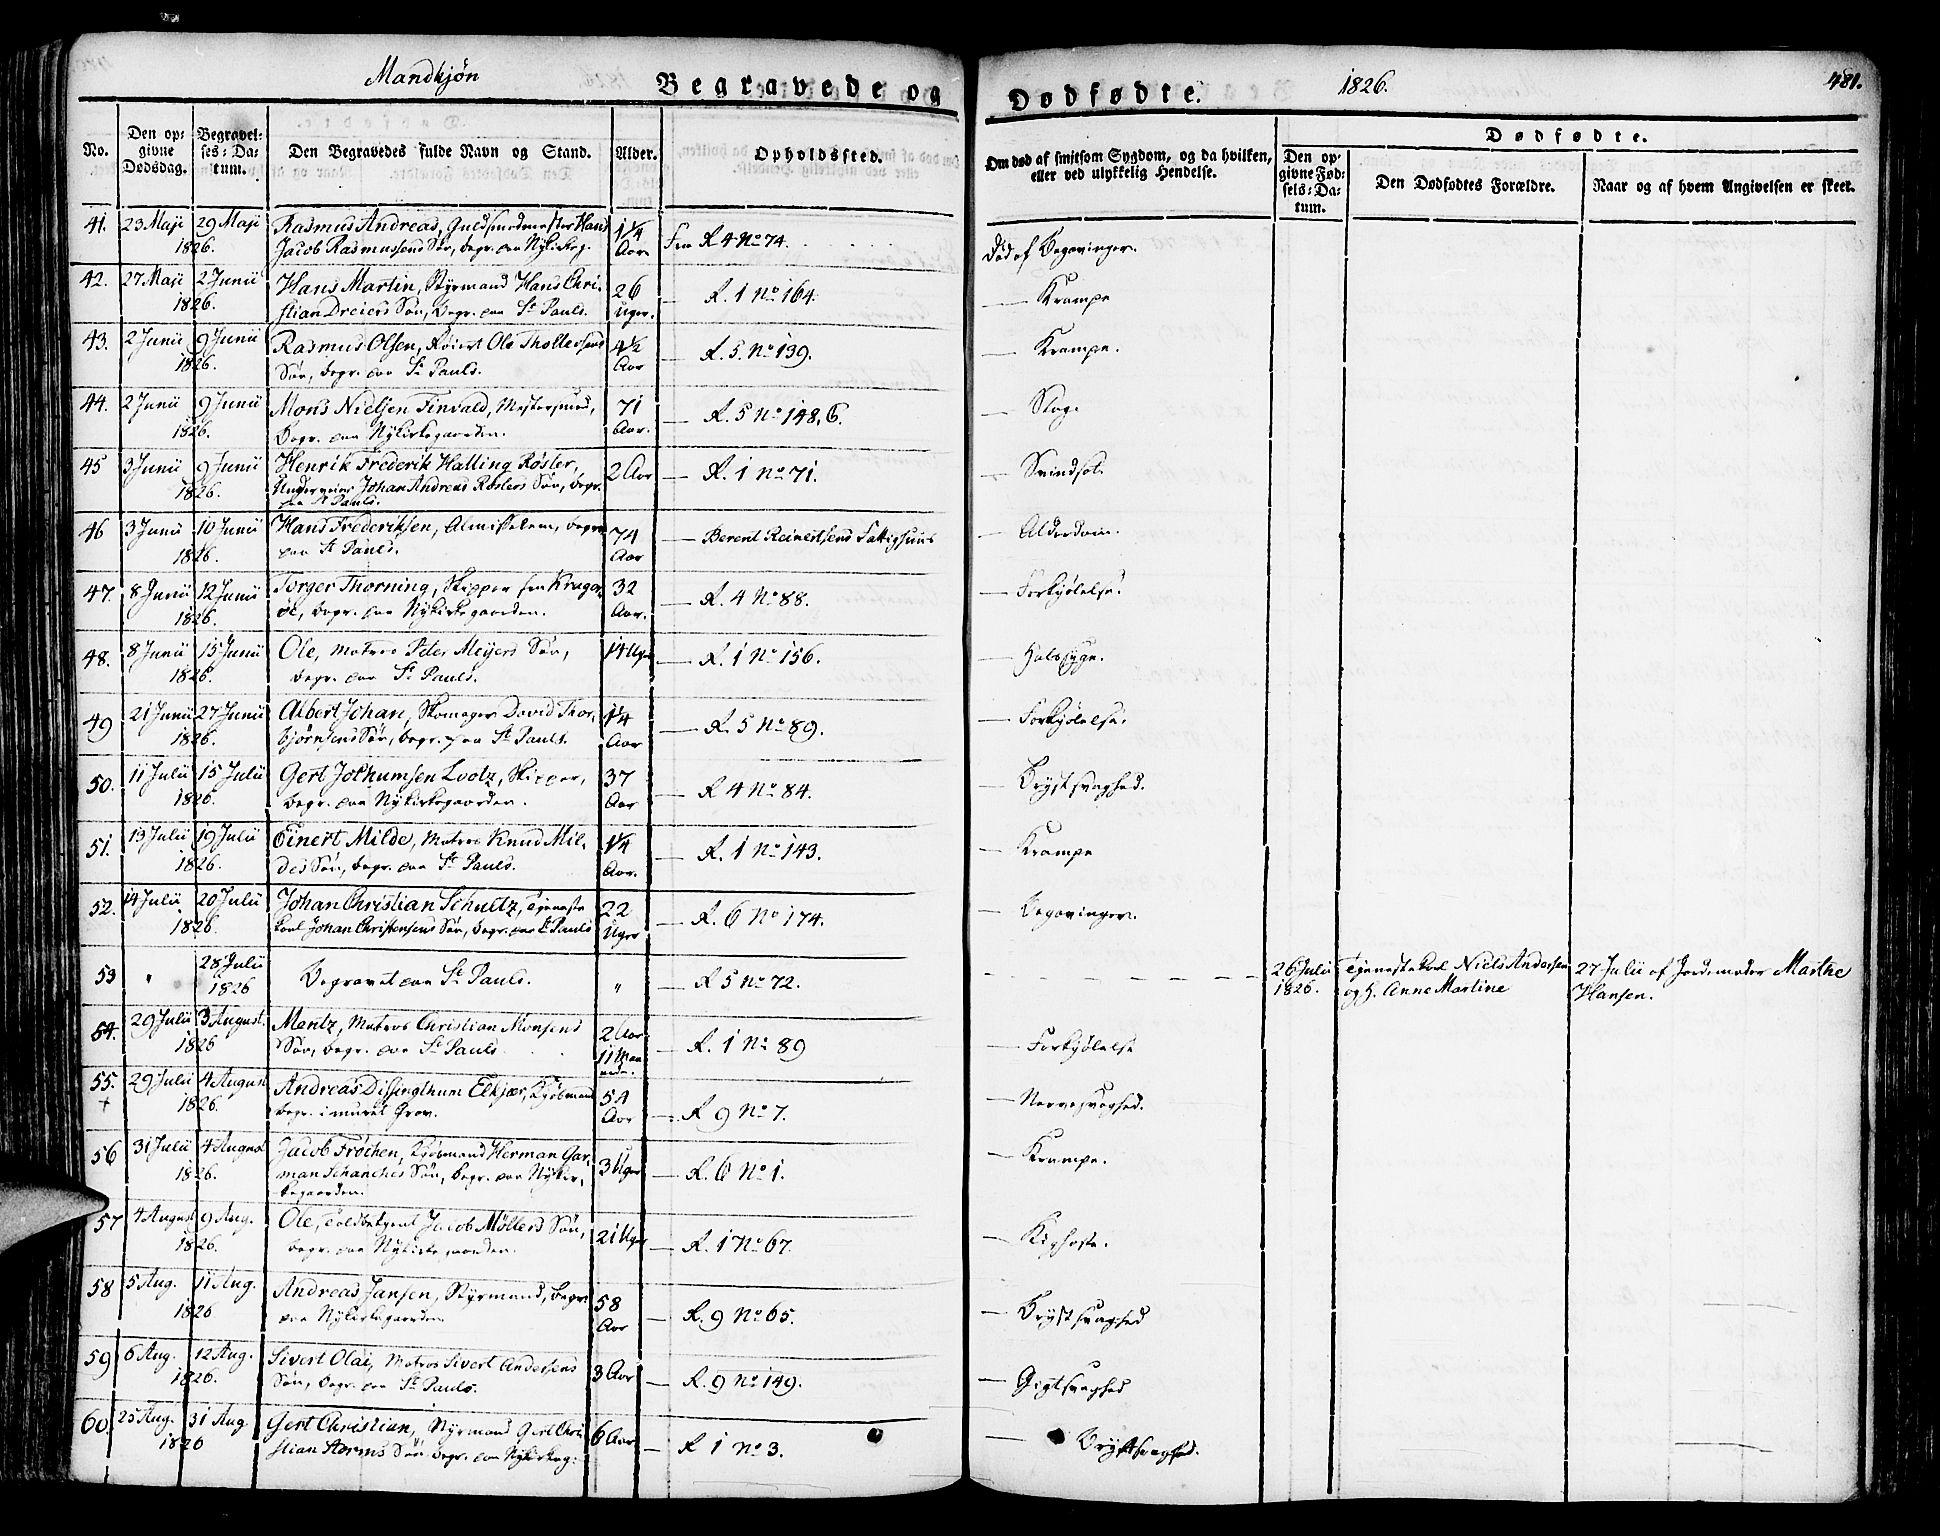 Mandkjøn
Begravede og
Dødfødte.
1826.
481.
No.
Den op-
givne
Dødsdag.
Begravel-
ses-Da-
tum.
Den Begravedes fulde Navn og Stand.
Alder.
Opholdssted.
Om død af smitsom Sygdom, og da hvilken,
eller ved ulykkelig Hendelse.
Dødfødte.
Den op-
givne Fød-
sels-Da-
tum.
Den Dødfødtes Forældre.
Naar og af hvem Angivelsen er skeet.
41. 23 Maji 29 Maji Rasmus Andreas, Guldsmedmester Hans 1¼
1826. Jacob Rasmussens Søn, begr. paa Nykirkeg. Aar Fra R 4 No 74. Død af Begavinger.
42. 27 Maji 2 Junii Hans Martin, Styrmand Hans Chri- 26
1826. stian Dreiers Søn, begr. paa St Pauls. Uger. — R. 1 No 164. — Krampe
43. 2 Junii 9 Junii Rasmus Olsen, Ole Thollersens 4½
1826. Søn, begr. paa St Pauls. Aar — R. 5. No 139. — Krampe.
44. 2 Junii 9 Junii Mons Nielsen Finvald, Mestersmed, 71
1826. Begr. paa Nykirkegaarden. Aar. — R. 5 No 148,6. — Slag.
45 3 Junii 9 Junii Henrik Frederik Halling Røsler, 2 Aar — R. 1 No 71. — Svindsot.
1826. Johan Andreas Røslers Søn, begr.
paa St Pauls.
46 3 Junii 10 Junii Hans Frederiksen, Almisselem, begr. 74 — Berent Reinertsens Fattighuus — Alderdom.
1826. paa St Pauls. Aar
47. 8 Junii 12 Junii Torger Thorning, Skipper fra Krager- 32
1826. øe, begr. paa Nykirkegaarden. Aar. — R. 4 No 88. — Forkjølelse.
48. 8 Junii 15 Junii Ole, Matros Peter Meyers Søn, 14 Uger — R. 1 No 156. — Halssyge.
1826. begr. paa St Pauls.
49 21 Junii 27 Junii Albert Johan, Skomager David Thor- 1¼
1826. bjørnsens Søn, begr. paa St Pauls. Aar — R. 5 No 89. — Forkjølelse.
50. 11 Julii 15 Julii Gert Jochumsen Lootz, Skipper, 37
1826. begr. paa Nykirkegaarden. Aar — R 4 No 84. — Brystsvaghed.
51. 13 Julii 19 Julii Einert Milde, Matros Knud Mil- 1¼
1826. des Søn, begr. paa St Pauls. Aar. — R. 1 No 143. — Krampe
52. 14 Julii 20 Julii Johan Christian Schultz, Tjeneste- 22
1826. karl Johan Christensens Søn, begr. paa St Pauls Uger — R. 6 No 174. — Begavinger.
53 " 28 Julii Begravet paa St Pauls. " — R 5 No 72. 26 Julii Tjenestekarl Niels Andersen 27 Julii af Jordemoder Marthe
1826 1826. og H. Anne Martine Hansen.
54. 29 Julii 3 August. Mentz, Matros Christian Monsens 2 Aar
1826 Søn, begr. paa St Pauls. 11 Maa-
neder. — R. 1 No 89 — Forkjølelse
55. 29 Julii 4 August Andreas Dissingthum Elkjær, Kjøbmand 54
+ 1826. begr. i muret Grav. Aar — R 9 No 7. — Nervesvaghed.
56 31 Julii 4 August Jacob Frøchen, Kjøbmand Herman Gar- 3 Uger — R. 6 No 1. — Krampe.
1826. man Schanches Søn, begr. paa Nykir-
kegaarden.
57 4 August 9 Aug. Ole, Toldbetjent Jacob Møllers Søn, 21 Uger — R. 1 No 67. — Kighoste.
1826. begr. paa Nykirkegaarden.
58 5 Aug. 11 Aug. Andreas Jansen, Styrmand, begr. 58
1826 paa Nykirkegaarden Aar — R. 9 No 65. — Brystsvaghed
59 6 Aug. 12 Aug. Sivert Olai, Matros Sivert Andersens 3 Aar — R. 9 No 149. — Gigtsvaghed
1826. Søn, begr. paa St Pauls.
60. 25 Aug. 31 Aug. Gert Christian, Styrmand Gert Chri- 6 Aar — R 1 No 3. — Brystsvaghed.
1826 stian Søn begr. paa Nykirkeg: